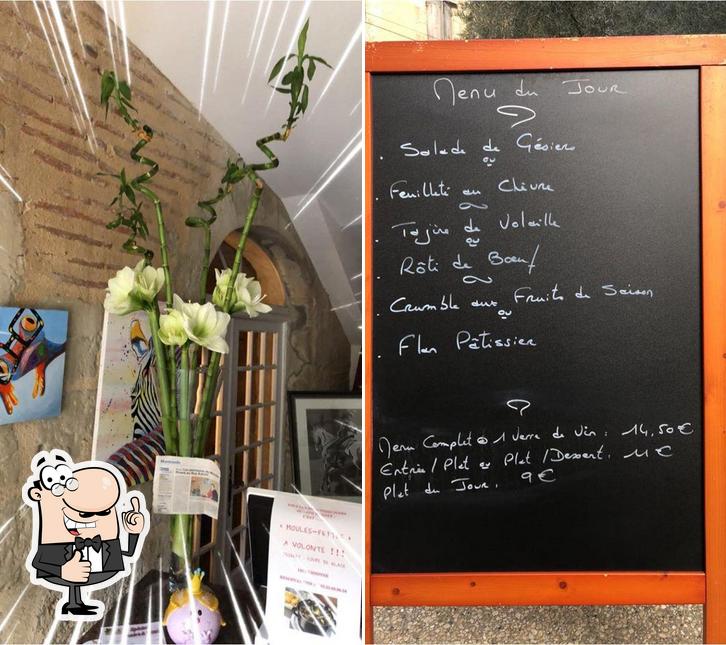 Menu du Jour
. Salade de Gésiers
ou
. Feuilleté au Chèvre
. Tajine de Volaille
ou
. Rôti de Boeuf
. Crumble aux Fruits de Saison
ou
. Flan Pâtissier
Menu Complet 1 Verre de Vin : 14,50 €
Entrée / Plat ou Plat / Dessert. 11 €
Plat du Jour. 9 €
« MOULES-FRITES »
A VOLONTE !!!